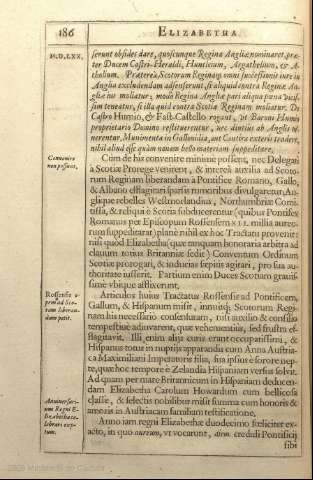 186 ELIZABETHA
M.D.LXX.
serunt obsides dare, quoscunque Regina Angliæ nominaret, præ-
ter Ducem Castri-Heraldi, Huntleium, Argathelium, & A-
tholium. Præterea, Scotorum Reginam omni successionis iure in
Angliæ excludendam adsenserunt, si aliquid contra Reginæ An-
gliæ ius moliatur; modò Regina Angliæ pari aliqua pœna vicis-
sim teneatur, si illa quid contra Scotiæ Reginam moliatur. De
Castro Humio, & Fast-Castello rogant, vt Baroni Humio
proprietario Domino restituerentur, nec diutius ab Anglis te-
nerentur. Munimenta in Gallouidia, aut Cantire exteris tradere,
nihil aliud esse quàm nouam bello materiam suppeditare.
Conuenire
non possunt.
Cùm de his convenire minimè possent, nec Delegati
à Scotiæ Prorege venirent, & interea auxilia ad Scoto-
rum Reginam liberandam à Pontifice Romano, Gallo,
& Albano efflagitari sparsis rumoribus divulgaretur, An-
glique rebelles Westmorlandius, Northumbriæ Comi-
tissa, & reliqui è Scotia subducerentur (quibus Pontifex
Romanus per Episcopum Rossensem XII. millia aureo-
rum suppeditarat) planè nihil ex hoc Tractatu provenit:
nisi quòd Elizabetha (quæ tanquam honoraria arbitra ad
clauum totius Britanniæ sedit) Conventum Ordinum
Scotiæ prorogari, & inducias sæpiùs agitari, pro sua au-
thoritate iusserit. Partium enim Duces Scotiam grauis-
simè vbique afflixerunt.
Rossensis o-
pem ad Sco-
tam liberan-
dam petit.
Articulos huius Tractatus Rossensis ad Pontificem,
Gallum, & Hispanum misit, innuitq; Scotorum Regi-
nam his necessariò consensuram, nisi auxilio & consilio
tempestiuè adiuvarent, quæ vehementiùs, sed frustrà ef-
flagitavit. Illi enim alijs curis erant occupatissimi, &
Hispanus totus in nuptijs apparandis cum Anna Austria-
ca Maximiliani Imperatoris filia, sua ipsius è sorore nep-
te, quæ hoc tempore è Zelandia Hispaniam versùs solvit.
Ad quam per mare Britannicum in Hispaniam deducen-
dam Elizabetha Carolum Howardum cum bellicosa
classe, & selectis nobilibus misit summa cum honoris &
amoris in Austriacam familiam testificatione.
Anniversari-
um Regni E-
lizabethæ ce-
lebrari cœp-
tum.
Anno iam regni Elizabethæ duodecimo fœliciter ex-
acto, in quo aureum, vt vocarunt, diem creduli Pontificij
sibi